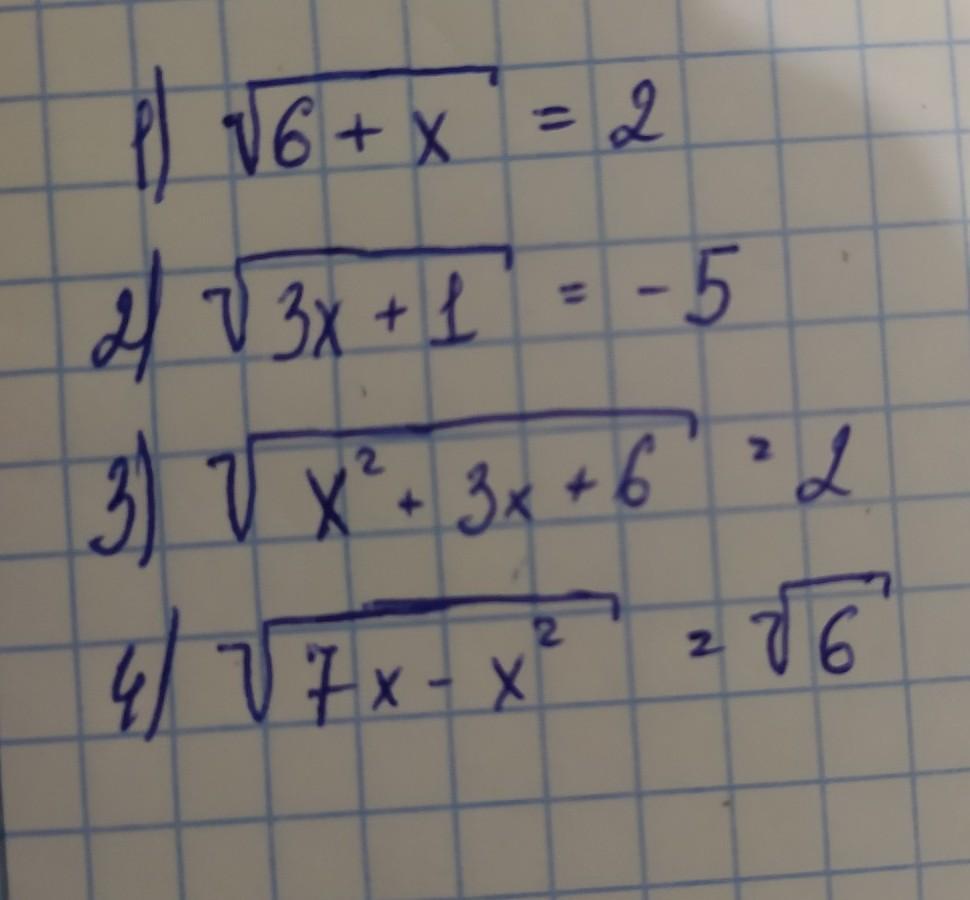 1) √6 + x = 2
2) √3x + 1 = - 5
3) √x² + 3x + 6 = 2
4) √7x - x² = √6